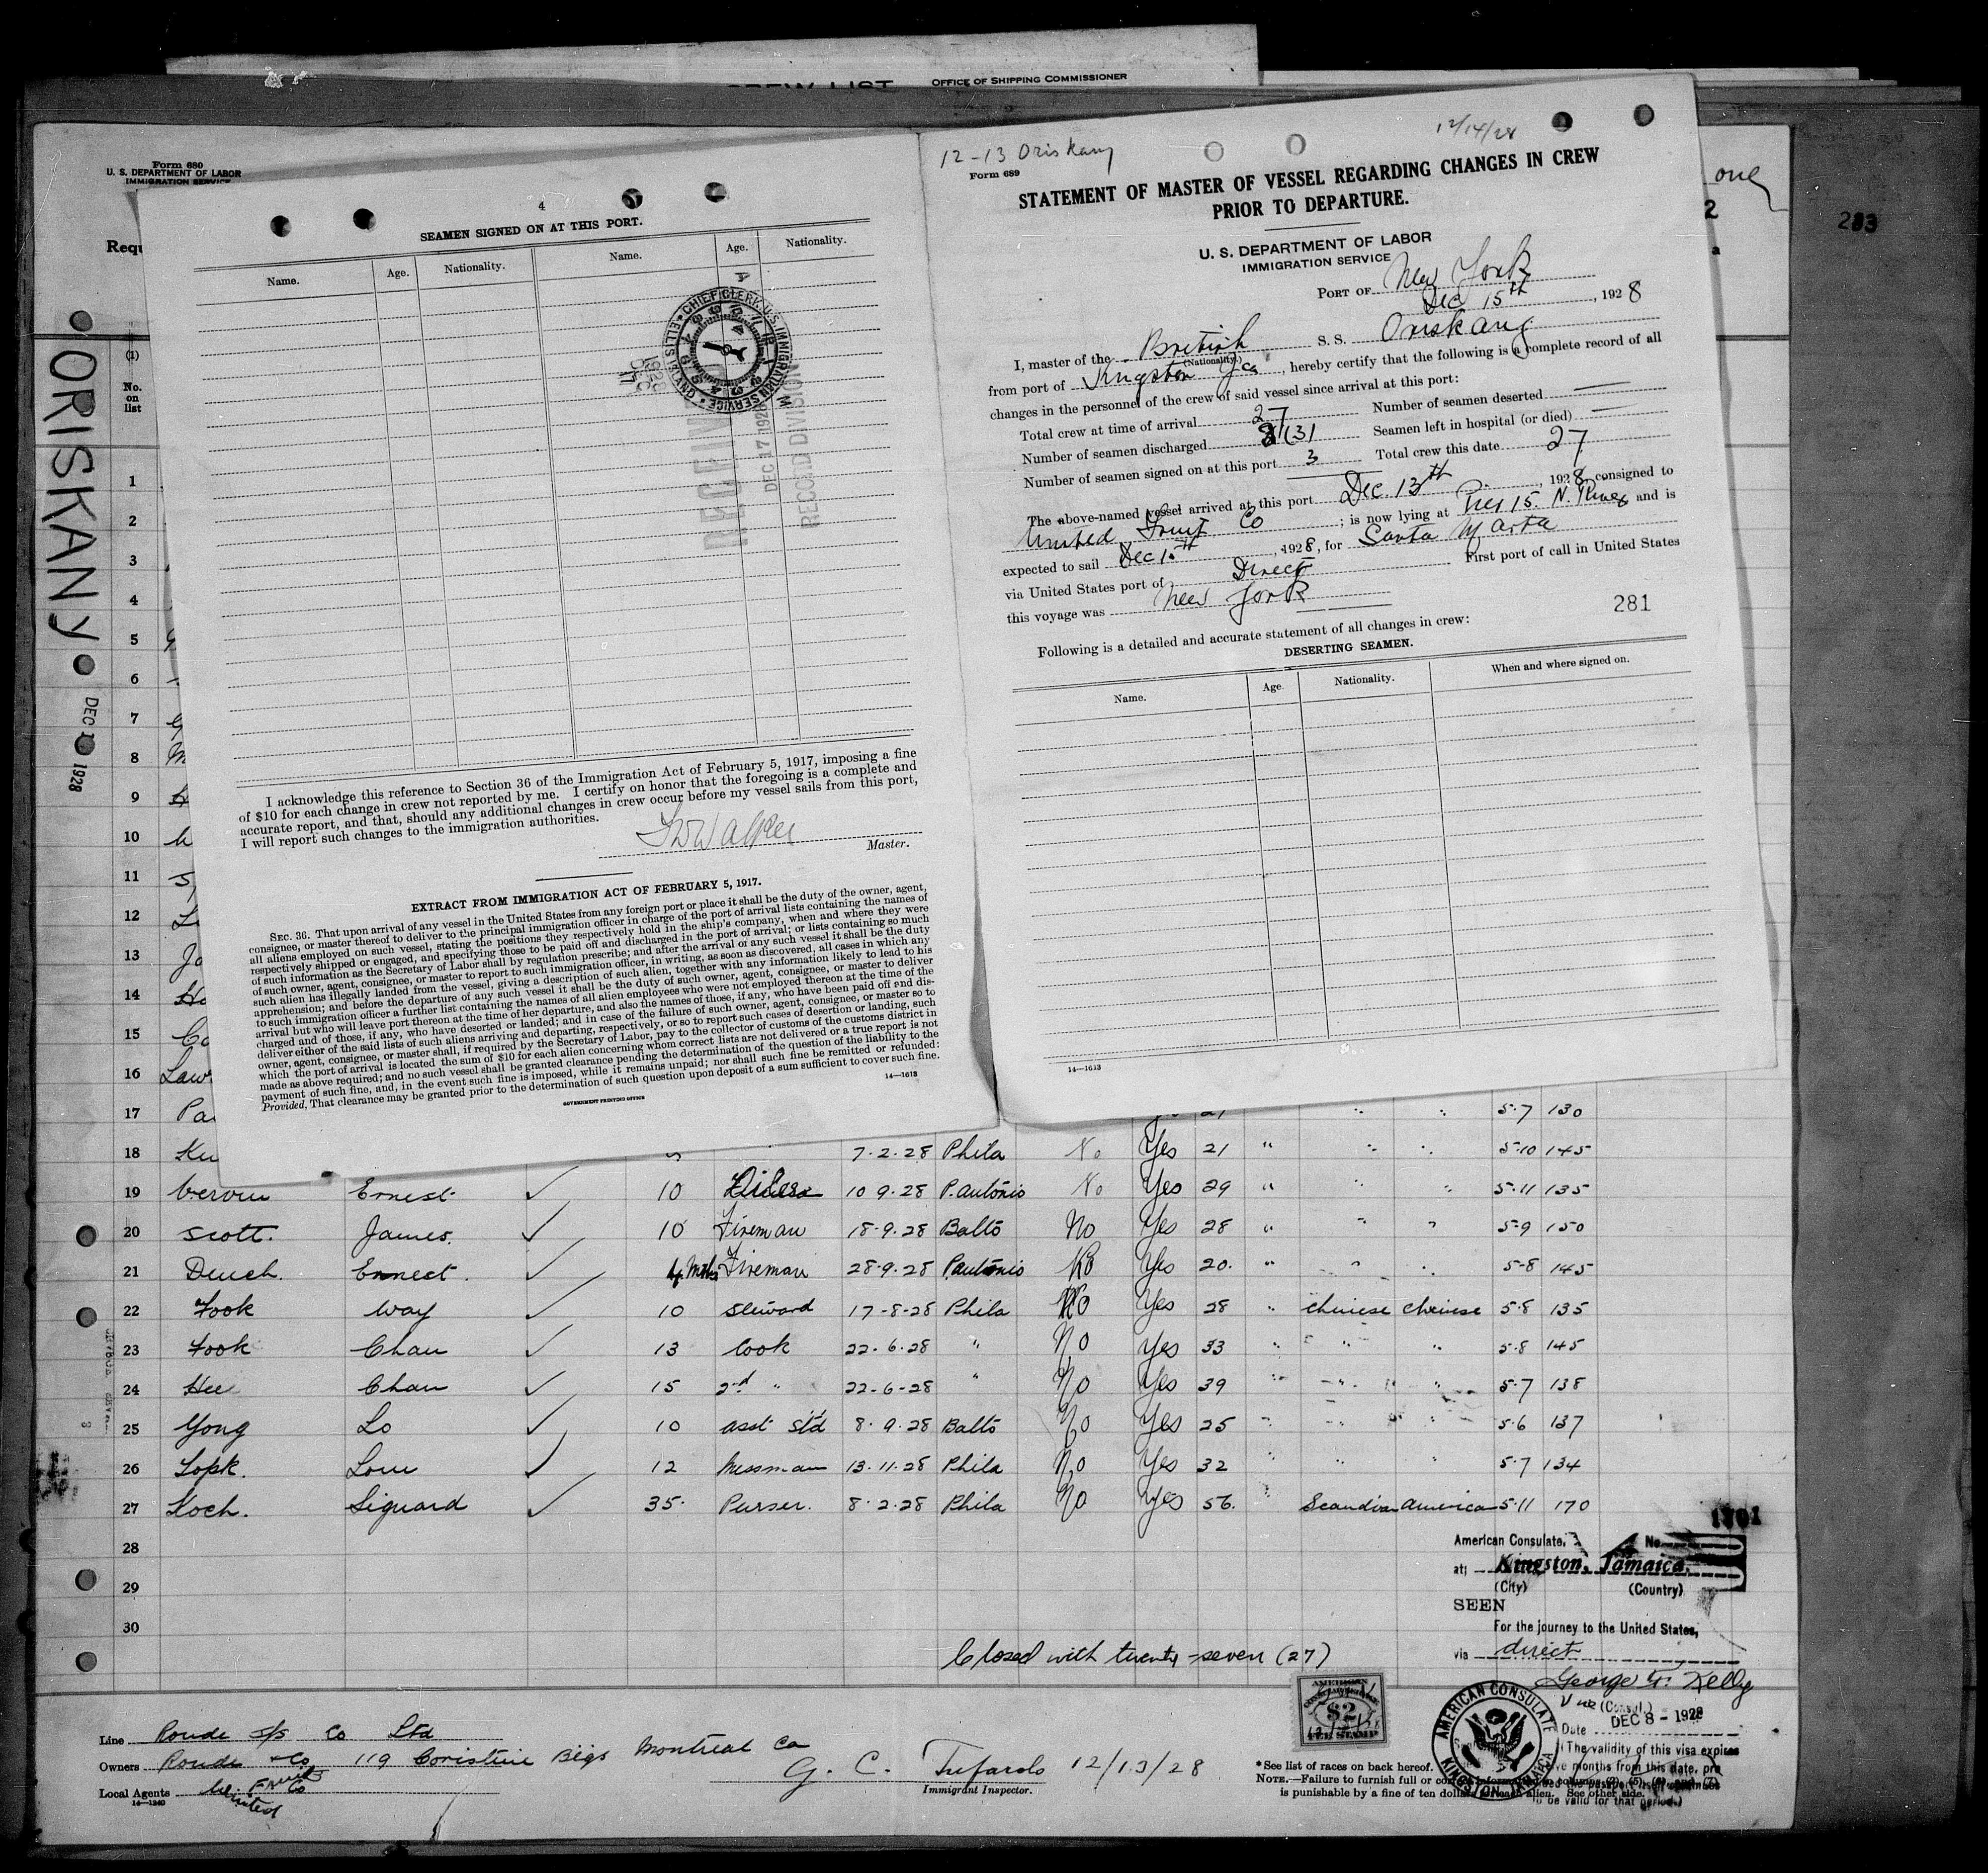 OFFICE OF SHIPPING COMMISSIONER
CREW LIST
Form 680
U. S. DEPARTMENT OF LABOR
IMMIGRATION SERVICE
one
2
a
283
Requ
(1)
No.
on
list
ORISKANY
DEC 1 1928
4
SEAMEN SIGNED ON AT THIS PORT.
Name. Age. Nationality. Name. Age. Nationality.
CHIEF CLERK, U.S. IMMIGRATION SERVICE
ELLIS ISLAND
1928 DEC 17
RECEIVED
DEC 17 1928
RECORD DIVISION
I acknowledge this reference to Section 36 of the Immigration Act of February 5, 1917, imposing a fine
of $10 for each change in crew not reported by me. I certify on honor that the foregoing is a complete and
accurate report, and that, should any additional changes in crew occur before my vessel sails from this port,
I will report such changes to the immigration authorities.
Walker
Master.
EXTRACT FROM IMMIGRATION ACT OF FEBRUARY 5, 1917.
SEC. 36. That upon arrival of any vessel in the United States from any foreign port or place it shall be the duty of the owner, agent,
consignee, or master thereof to deliver to the principal immigration officer in charge of the port of arrival lists containing the names of
all aliens employed on such vessel, stating the positions they respectively hold in the ship's company, when and where they were
respectively shipped or engaged, and specifying those to be paid off and discharged in the port of arrival; or lists containing so much
of such information as the Secretary of Labor shall by regulation prescribe; and after the arrival of any such vessel it shall be the duty
of such owner, agent, consignee, or master to report to such immigration officer, in writing, as soon as discovered, all cases in which any
such alien has illegally landed from the vessel, giving a description of such alien, together with any information likely to lead to his
apprehension; and before the departure of any such vessel it shall be the duty of such owner, agent, consignee, or master to deliver
to such immigration officer a further list containing the names of all alien employees who were not employed thereon at the time of the
arrival but who will leave port thereon at the time of her departure, and also the names of those, if any, who have been paid off and dis-
charged and of those, if any, who have deserted or landed; and in case of the failure of such owner, agent, consignee, or master so to
deliver either of the said lists of such aliens arriving and departing, respectively, or so to report such cases of desertion or landing, such
owner, agent, consignee, or master shall, if required by the Secretary of Labor, pay to the collector of customs of the customs district in
which the port of arrival is located the sum of $10 for each alien concerning whom correct lists are not delivered or a true report is not
made as above required; and no such vessel shall be granted clearance pending the determination of the question of the liability to the
payment of such fine, and, in the event such fine is imposed, while it remains unpaid; nor shall such fine be remitted or refunded:
Provided, That clearance may be granted prior to the determination of such question upon deposit of a sum sufficient to cover such fine.
14—1613
GOVERNMENT PRINTING OFFICE
12-13 Oriskany
12/14/28
Form 689
STATEMENT OF MASTER OF VESSEL REGARDING CHANGES IN CREW
PRIOR TO DEPARTURE.
U. S. DEPARTMENT OF LABOR
IMMIGRATION SERVICE
PORT OF New York
Dec 15th, 1928
I, master of the British S. S. Oriskany
(Nationality.)
from port of Kingston Jca, hereby certify that the following is a complete record of all
changes in the personnel of the crew of said vessel since arrival at this port:
Total crew at time of arrival 27 Number of seamen deserted —
Number of seamen discharged (3) Seamen left in hospital (or died) —
Number of seamen signed on at this port 3 Total crew this date 27
The above-named vessel arrived at this port Dec. 13th, 1928, consigned to
United Fruit Co; is now lying at Pier 15. N. River and is
expected to sail Dec 15th, 1928, for Santa Marta
via United States port of Direct First port of call in United States
this voyage was New York
281
Following is a detailed and accurate statement of all changes in crew:
DESERTING SEAMEN.
Name. Age. Nationality. When and where signed on.
14—1613
1
2
3
4
5
6
7
8
9
10
11
12
13
14
15
16 Law
17 Pa 21 " " 5-7 130
18 Ku 7-2-28 Phila No Yes 21 " " " 5-10 145
19 Vervin Ernest ✓ 10 10 9-28 P. Antonio No Yes 29 " " " 5-11 135
20 Scott. James. ✓ 10 Fireman 18-9-28 Balto No Yes 28 " " " 5-9 150
21 Deuch. Ernest. ✓ 4 Mths Fireman 28-9-28 P. Antonio No Yes 20. " " " 5-8 145
22 Fook Way ✓ 10 Steward 17-8-28 Phila No Yes 28 " Chinese Chinese 5-8 135
23 Fook Chan ✓ 13 Cook 22-6-28 " No Yes 33 " " " 5-8 145
24 Hee Chan ✓ 15 2nd " 22-6-28 " No Yes 39 " " " 5-7 138
25 Yong Lo ✓ 10 asst std 8-9-28 Balto No Yes 25 " " " 5-6 137
26 Lopk. Low ✓ 12 Messman 13-11-28 Phila No Yes 32 " " " 5-7 134
27 Koch. Siguard ✓ 35. Purser. 8-2-28 Phila No Yes 56. " Scandian America 5-11 170
28
29
30
Closed with twenty-seven (27)
1701
American Consulate, No.
at Kingston, Jamaica.
(City) (Country)
SEEN
For the journey to the United States,
via direct
George F. Kelly
Vice (Consul.)
Date DEC 8 - 1928
(The validity of this visa expires
AMERICAN CONSULATE
KINGSTON, JAMAICA
AMERICAN
$2
FEE STAMP
Line Ronde s/s Co Ltd
Owners Ronde & Co 119 Coristine Bldgs Montreal Ca
Local Agents United Fruit Co
14—1240
G. C. Tufardo 12/13/28
Immigrant Inspector.
*See list of races on back hereof.
NOTE.—Failure to furnish full or
is punishable by a fine of ten dollars alien. See other side.
to be valid for that period.)